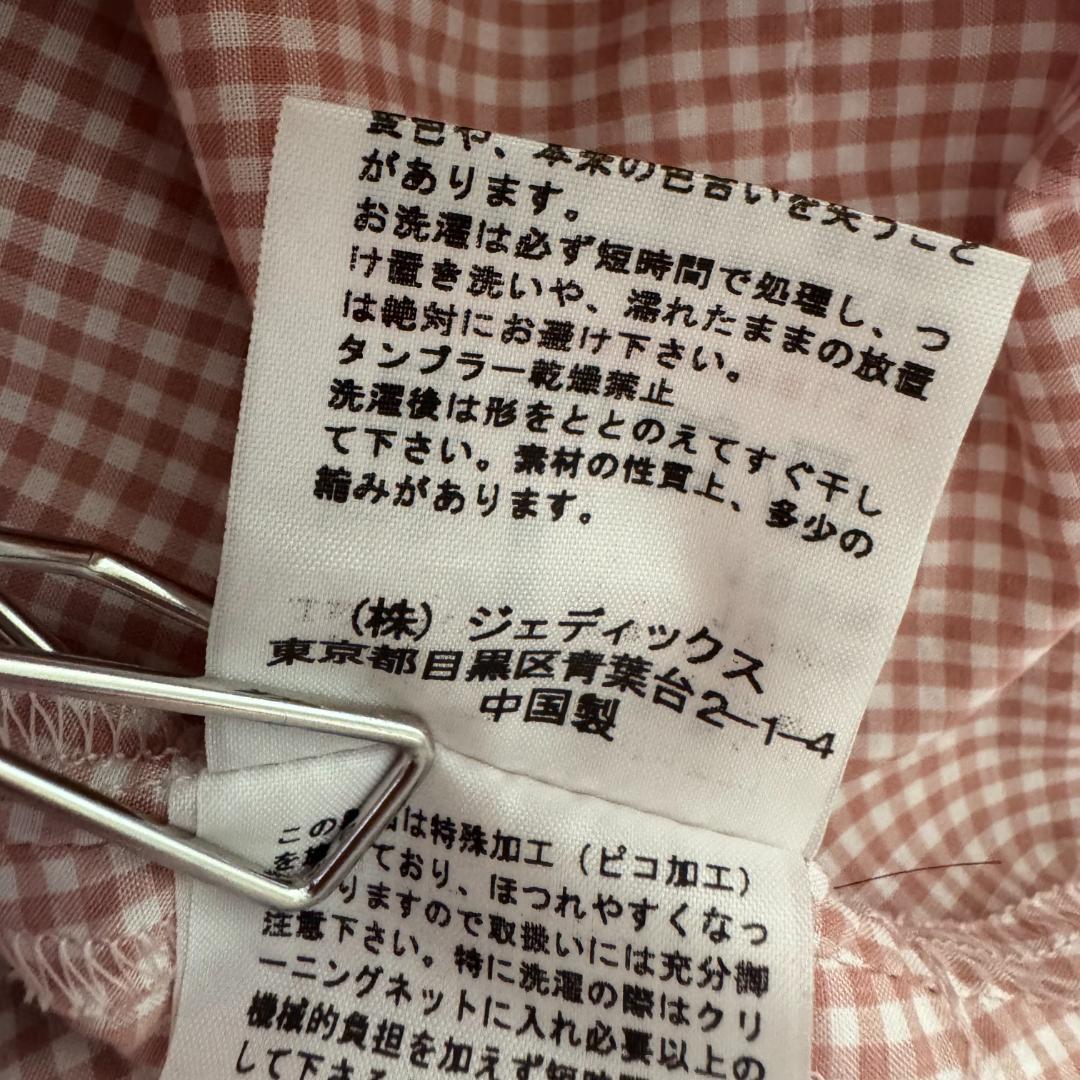 変色や、本来の色合いを失うこと
があります。
お洗濯は必ず短時間で処理し、つ
け置き洗いや、濡れたままの放置
は絶対にお避け下さい。
タンブラー乾燥禁止
洗濯後は形をととのえてすぐ干し
て下さい。素材の性質上、多少の
縮みがあります。
(株) ジェディックス
東京都目黒区青葉台2-1-4
中国製
この は特殊加工 (ピコ加工)
を ており、ほつれやすくなっ
りますので取扱いには充分御
注意下さい。特に洗濯の際はクリ
ーニングネットに入れ必要以上の
機械的負担を加えず短時
して下さ